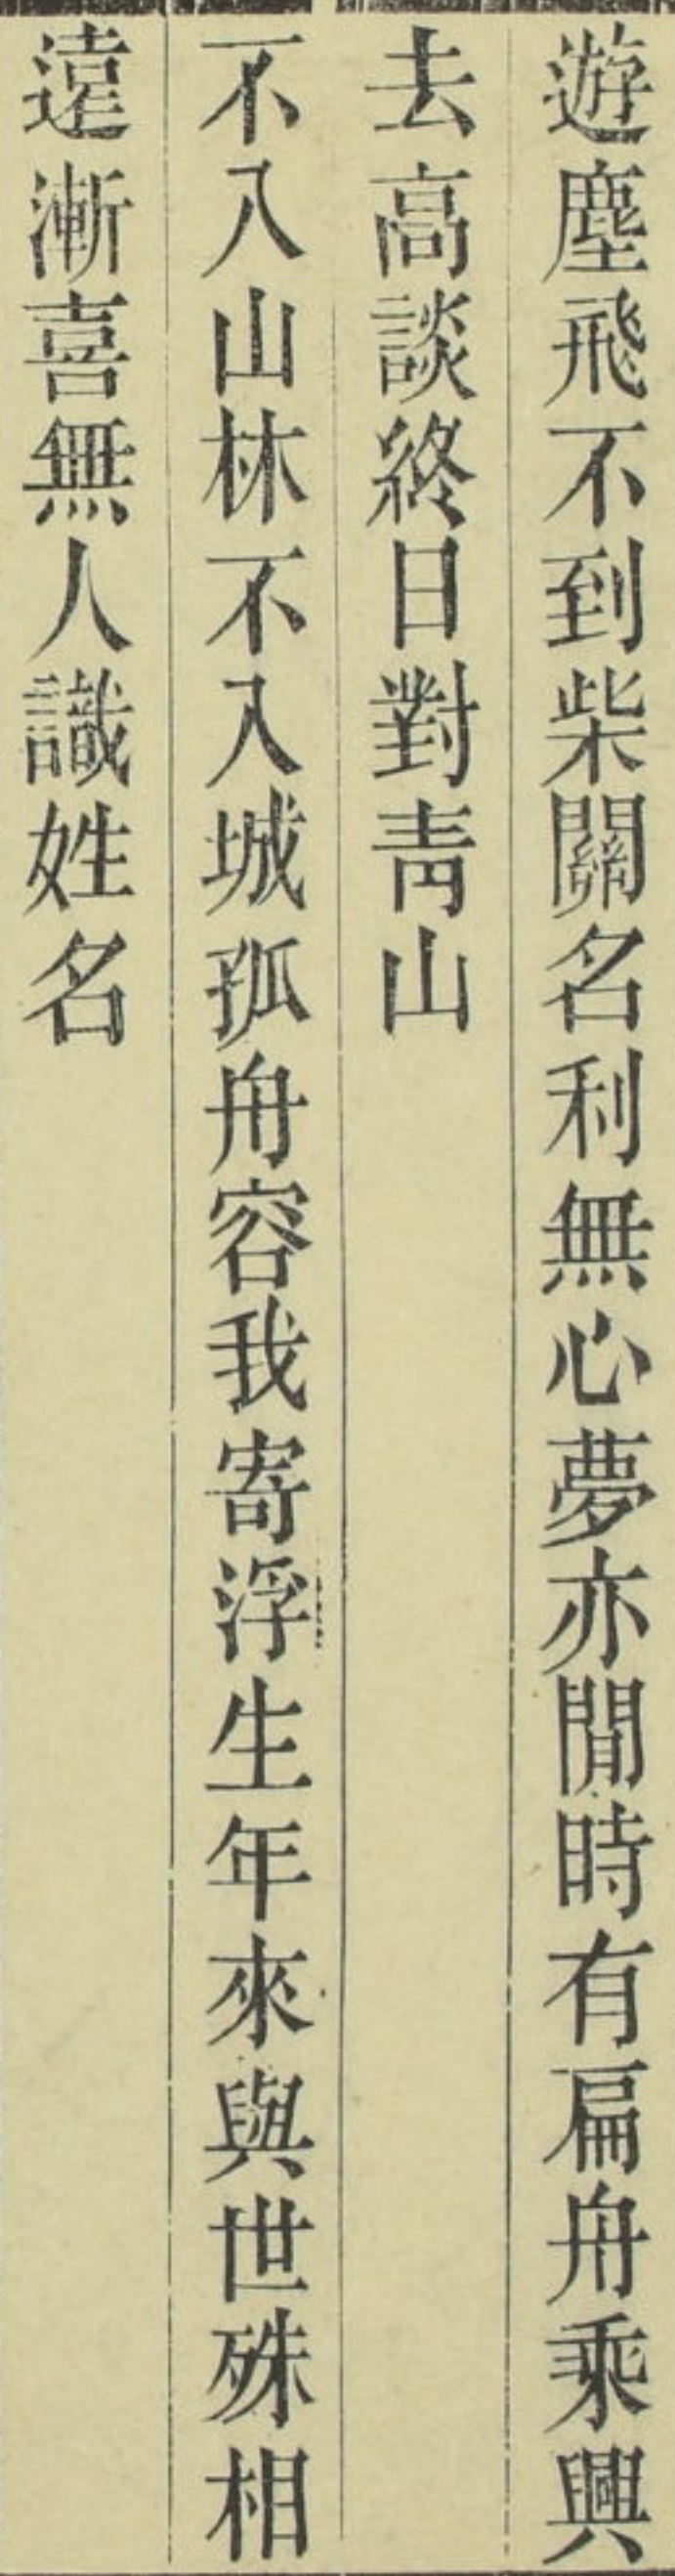 遊塵飛不到柴關名利無心夢亦閒時有扁舟乘興
去高談終日對靑山
不入山林不入城孤舟容我寄浮生年來與世殊相
遠漸喜無人識姓名